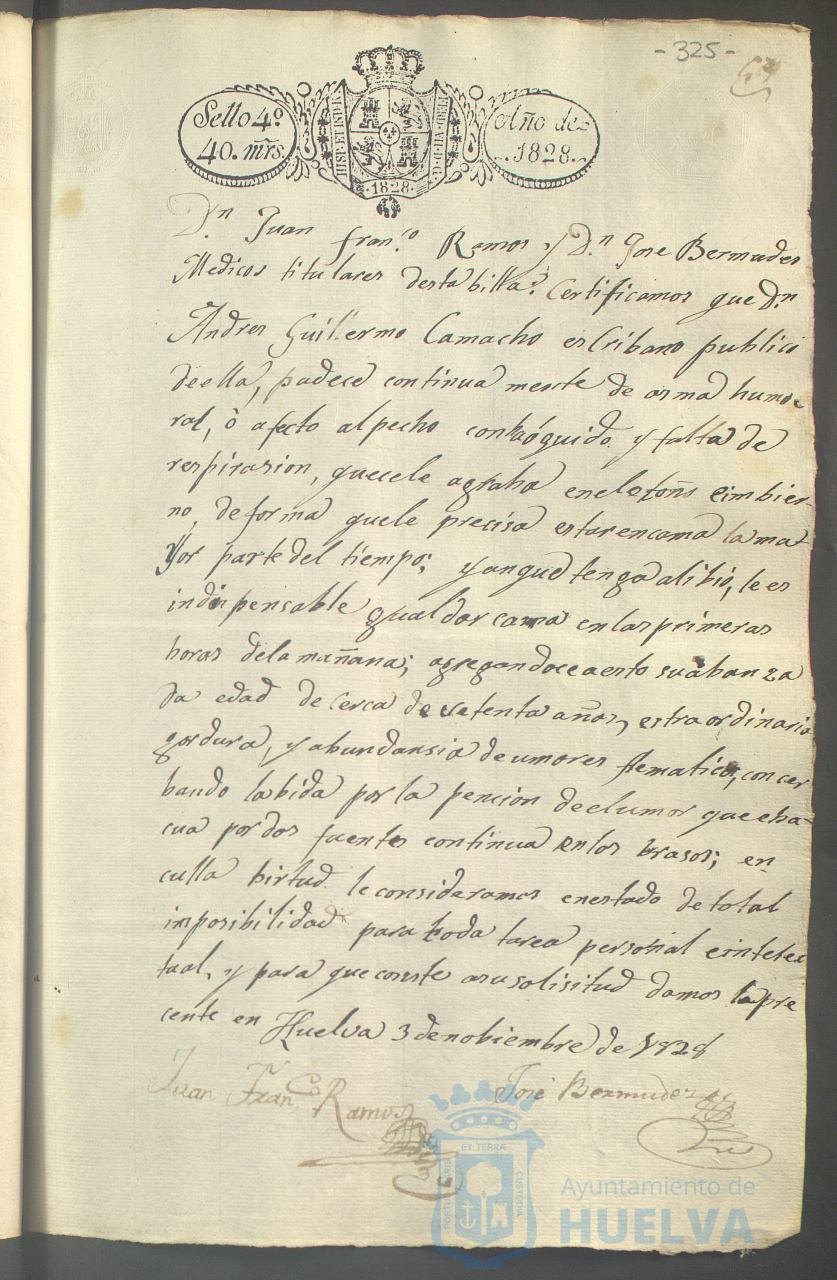 - 325 -
Sello 4º
40. mrs.
HISP. ET IND. R.
FERD. VII. D. G.
Año de
1828.
· 1828 ·
Dn Juan Franco Ramos y Dn Jose Bermudes
Medicos titulares desta billa: Certificamos que Dn
Andres Guillermo Camacho escribano publico
de ella, padece continua mente de asma humo-
ral, ò afecto al pecho con rróquido y falta de
respirasion, que cele agraba en el otoño e imbier-
no, de forma que le precisa estar en cama la ma-
Yor parte del tiempo; y anque tenga alibio, le es
indispensable gualdar cama en las primeras
horas de la mañana; agregandoce a esto su abanza
da edad de cerca de setenta años, estraordinaria
gordura, y abundansia de umores flematicos, concer
bando la bida por la pencion de el umor que eba-
cua por dos fuentes continua en los brasos; en
culla birtud le consideramos en estado de total
imposibilidad para toda tarea personal e intelec
tual, y para que conste a su solisitud damos la pre
cente en Huelva 3 de nobiembre de 1828
Juan Franco Ramos
José Bermudez
ET TERRÆ
CUSTODIA
PORTUS MARIS
Ayuntamiento de
HUELVA